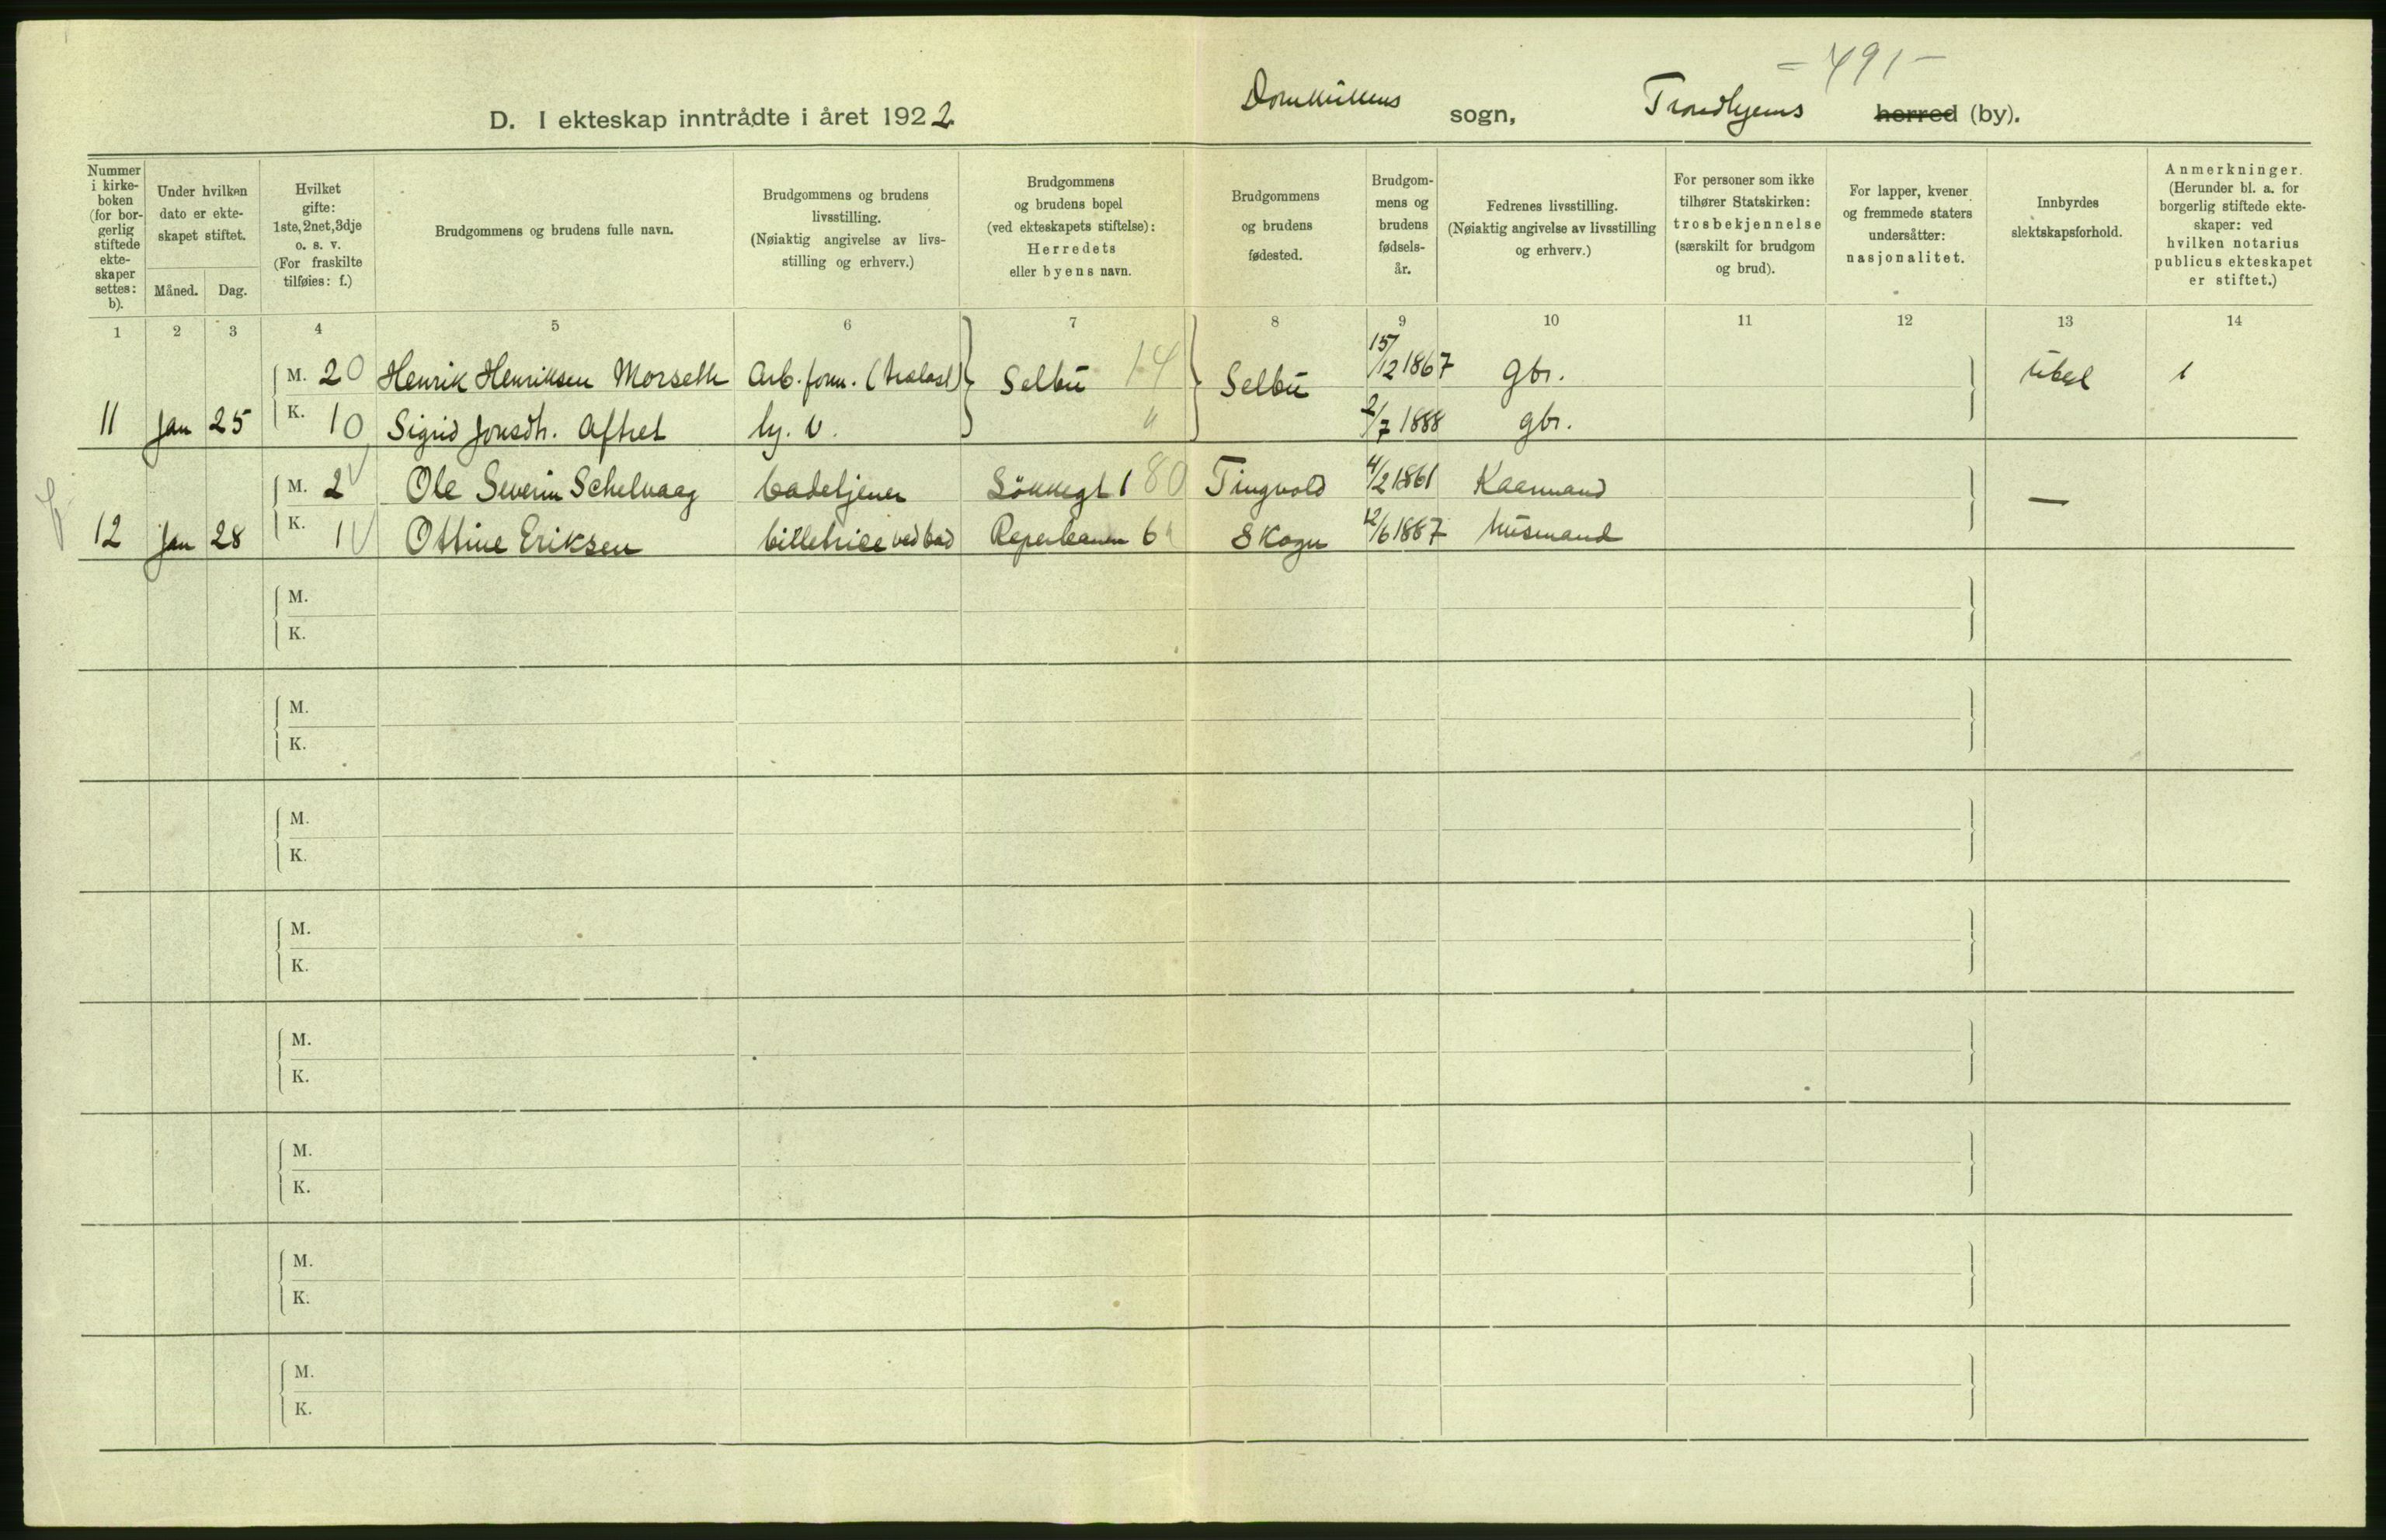 - 491 -
D. I ekteskap inntrådte i året 1922 Domkirkens sogn, Trondhjems herred (by).
Nummer i kirkeboken (for borgerlig stiftede ekteskaper settes: b).
Under hvilken dato er ekteskapet stiftet.
Måned. Dag.
Hvilket gifte: 1ste, 2net, 3dje o. s. v. (For fraskilte tilføies: f.)
Brudgommens og brudens fulle navn.
Brudgommens og brudens livsstilling. (Nøiaktig angivelse av livsstilling og erhverv.)
Brudgommens og brudens bopel (ved ekteskapets stiftelse): Herredets eller byens navn.
Brudgommens og brudens fødested.
Brudgommens og brudens fødselsår.
Fedrenes livsstilling. (Nøiaktig angivelse av livsstilling og erhverv.)
For personer som ikke tilhører Statskirken: trosbekjennelse (særskilt for brudgom og brud).
For lapper, kvener og fremmede staters undersåtter: nasjonalitet.
Innbyrdes slektskapsforhold.
Anmerkninger. (Herunder bl. a. for borgerlig stiftede ekteskaper: ved hvilken notarius publicus ekteskapet er stiftet.)
1 2 3 4 5 6 7 8 9 10 11 12 13 14
M. 2 0 Henrik Henriksen Morseth Arb. form. (trælast) Selbu 14 Selbu 15/12 1867 gbr. ubesl 1
11 Jan 25 K. 1 0 Sigrid Jonsdtr. Aftret " 2/7 1888 gbr.
M. 2 Ole Severin Schelvaag badetjener 1 80 Tingvold 4/2 1861 Kaarmand —
12 Jan 28 K. 1 Ottine Eriksen billetrice ved bad Reperbanen 6 " Skogn 12/6 1887 husmand
M.
K.
M.
K.
M.
K.
M.
K.
M.
K.
M.
K.
M.
K.
M.
K.